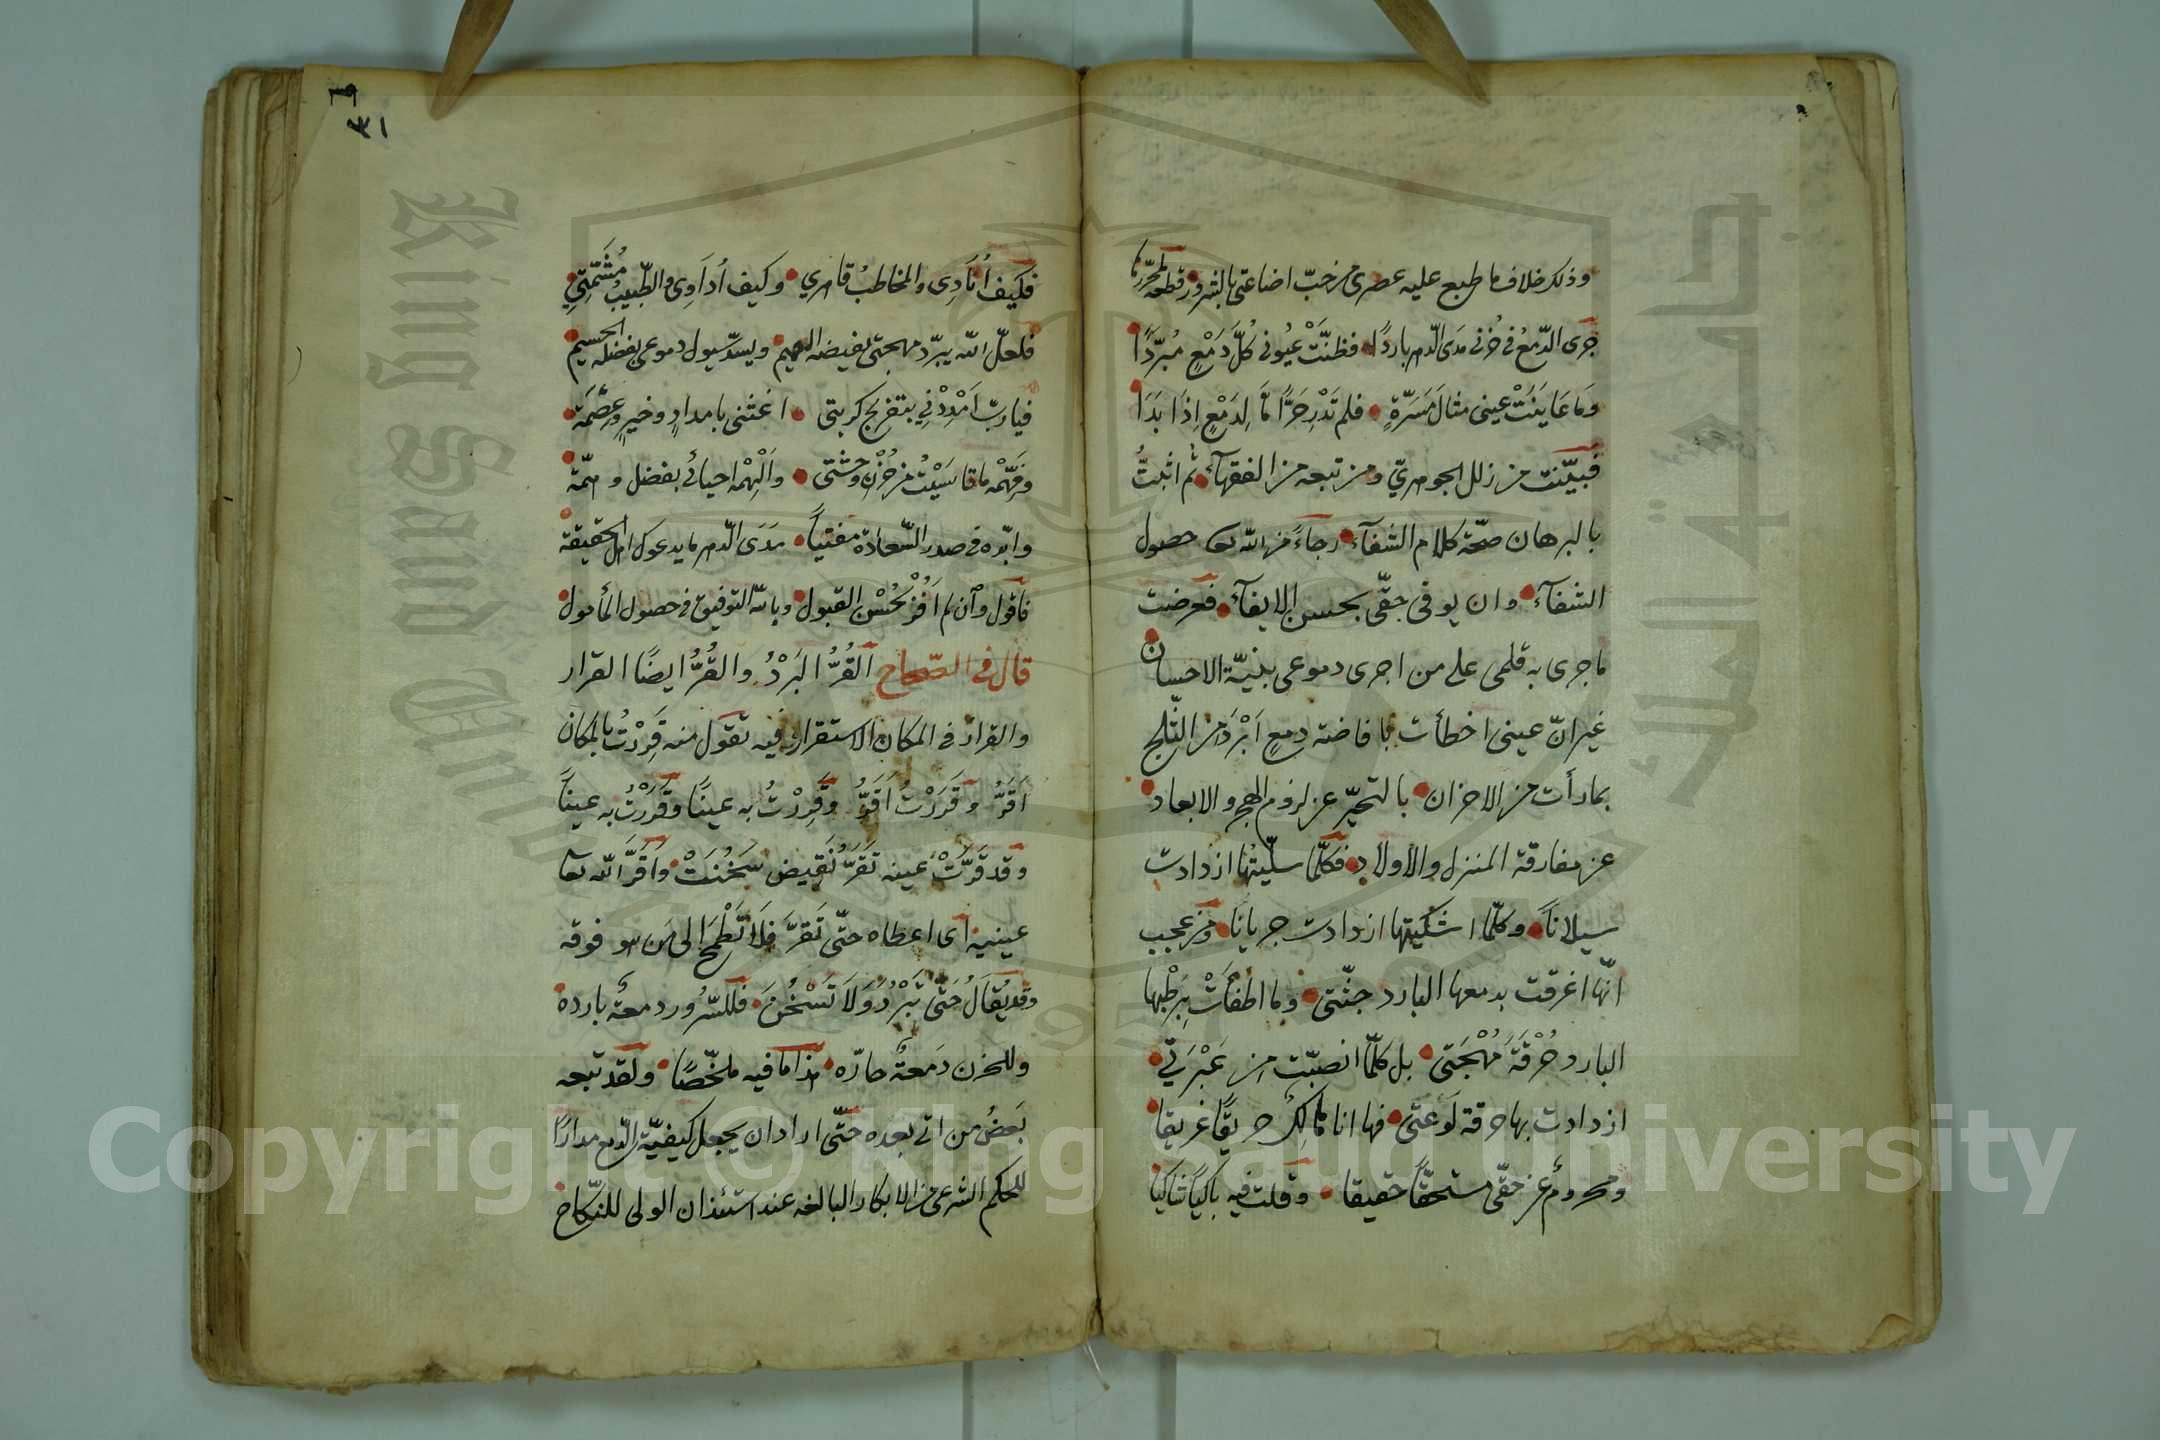 وذلك خلاف ما طبع عليه عصري من خبّ اضاعتي بالشرور قطعه لمحرّرها
جَرَى الدّمعُ في حُزني مَدَى الدّهر باردًا فظنّتْ عُيُوني كُلَّ دَمْعٍ مُبرّدًا
وَمَا عَايَنَتْ عيني مثالَ مَسَرّةٍ فلم تَدْرِ حَرًّا مَّا لِدَمْعٍ اِذَا بَدَا
فبيّنت من زلل الجوهريّ ومن تبعه من الفقهآء ثم اثبتُّ
بالبرهان صحّة كلام الشفآء رجاءً من الله تعا حصول
الشفآء وان يوفي حقّي بحسن الايفآء فعرضت
ما جرى به قلمي على من اجرى دموعي بنيّة الاحسان
غير انّ عيني اخطأت بافاضة دمعٍ اَبْرَدَ من الثّلج
بما رأت من الاحزان بالتحيّر عن لزوم الهج والابعاد
عن مفارقة المنزل والاولاد فكلّما سلّيتُها ازدادت
سيلانًا وكلّما اشكيتها ازدادت جريانا ومن عجب
انّها اغرقت بدمعها البارد جثّتي وما اطفأَتْ بِرَطْبها
البارد حُرْقَةَ مُهْجَتي بل كلّما انصبّت من عَبْرَتي
ازدادت بها حرقة لَوعَتي فها انا هالكٌ حريقًا غريقا
ومحرومٌ عن حقّي مستحقًّا حقيقا وقلت فيه باكيًا شاكيًا
٣١
فكيف اُنَادِى والمخاطبُ قاهري وكيف اُدَاوِى والطّبيبُ مُشَمِّتي
فلعلّ الله يبرّد مهجتي بفيضه العميم ويسدّ سيول دموعي بفضله الجسيم
فيارب اَمْدِدْني بتفريج كربتي اغثني بامدادٍ وخيرٍ وعِصْمَة
وفهّمْه ما قاسَيْتُ من حُزْن وحشتي واَلْهِمْه احيائي بفضل وهمّة
وابّده في صدر السّعادة مفتيًا مَدَى الدّهر ما يدعوك اهل الحقيقة
فاقول وان لم اَفُزْ بحُسْن القبول وبالله التوفيق في حصول المأمول
قال في الصّحاح اَلقُرُّ البَرْدُ والقُرُّ ايضًا القرار
والقرار في المكان الاستقرار فيه تقول منه قَرِرْتُ بالمكان
اَقَرُّ وقَرَرْتُ اَقِرُّ وقَرِرْتُ به عينًا وقَرَرْتُ به عينًا
وقد قَرَّتْ عينه تَقَرُّ نَقيض سَخُنَتْ وَاَقَرَّ الله تعا
عينيه اى اعطاه حتّى تَقَرَّ فلا تَطْمَح الى مَن هو فوقه
وقد يُقَالُ حَتّى تَبْرُدَ وَلاَ تَسْخُنَ فللسّرُور دمعةٌ بارده
وللحزن دَمعةٌ حارّه هذا ما فيه ملخّصًا ولقد تبعه
بَعضُ من اتى بعده حتّى اراد ان يجعل كيفيّة الدّمع مدارًا
للحكم الشرعي من الابكار البالغه عند استئذان الولى للنّكاح
King Saud University
Copyright © King Saud University
1957